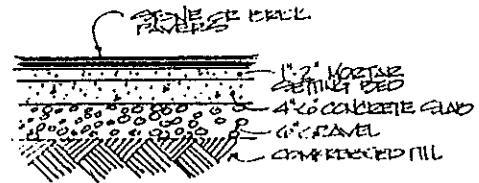 STONE OR BRICK
PAVERS
1"-2" MORTAR
SETTING BED
4"-6" CONCRETE SLAB
6" GRAVEL
COMPACTED FILL